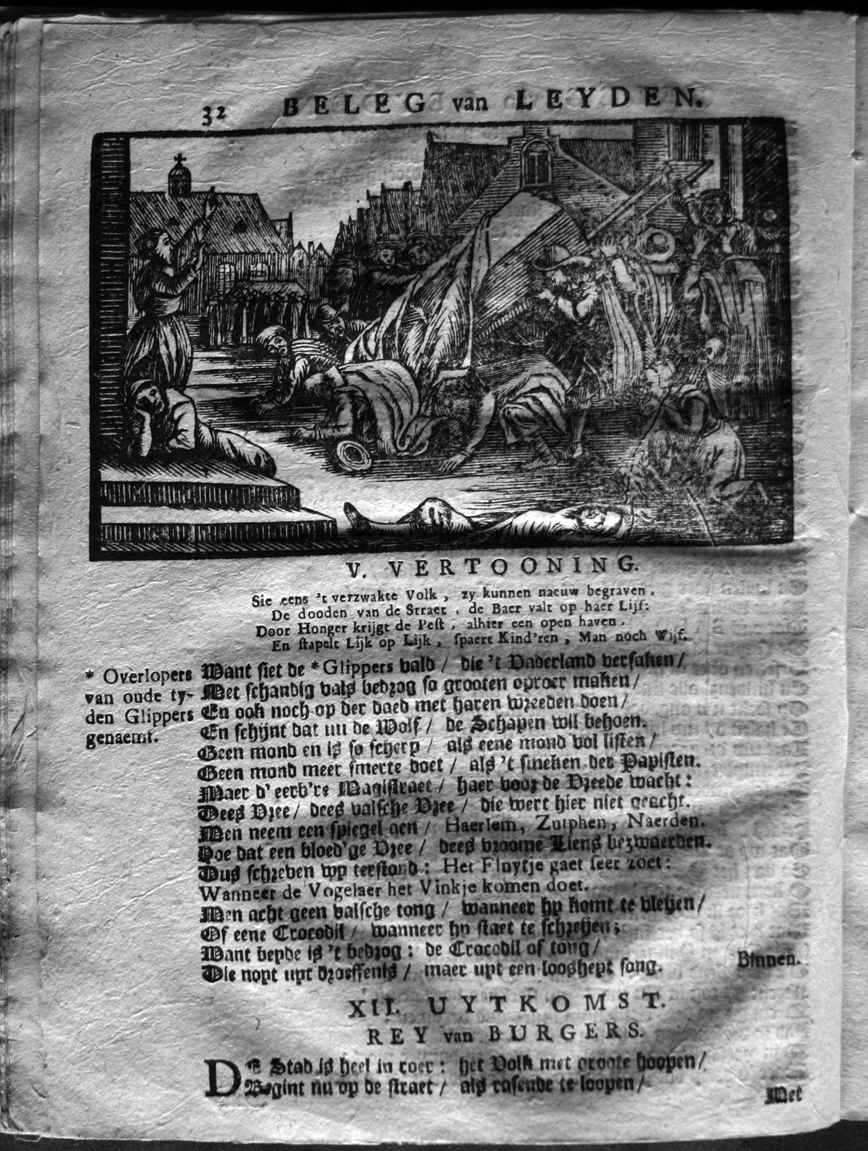 32 BELEG van LEYDEN.
V. VERTOONING.
Sie eens 't verzwakte Volk, zy kunnen naeuw begraven,
De dooden van de Straet, de Baer valt op haer Lijf:
Door Honger krijgt de Pest, alhier een open haven,
En stapelt Lijk op Lijk, spaert Kind'ren, Man noch Wijf.
* Overlopers
van oude ty-
den Glippers
genaemt.
Want siet de * Glippers bald / die 't Vaderland versaken /
Met schandig vals bedrog so grooten oproer maken /
En ook noch op der daed met haren wreeden doen /
En schijnt dat nu de Wolf / de Schapen wil behoen.
Geen mond en is so scherp / als eene mond vol listen /
Geen mond meer smerte doet / als 't smeken der Papisten.
Maer d'eerb're Magistraet / haer voor de Vreede wacht:
Dees Vree / dees valsche Vree / die wert hier niet geacht.
Men neem een spiegel aen / Haerlem, Zutphen, Naerden.
Hoe dat een bloed'ge Vree / dees vroome Liens bezwaerden.
Dus schreben wp terstond: Het Fluytje gaet seer zoet:
Wanneer de Vogelaer het Vinkje komen doet.
Men acht geen valsche tong / wanneer hy komt te vleijen /
Of eene Crocodil / wanneer hy staet te schreijen;
Want beyde is 't bedrog: de Crocodil of tong /
Die nopt uyt droeffenis / maer uyt een looshept song.
Binnen.
XII. UYTKOMST.
REY van BURGERS.
DE Stad is heel in roer: het Volk met groote hoopen /
Begint nu op de straet / als rasende te loopen /
Met